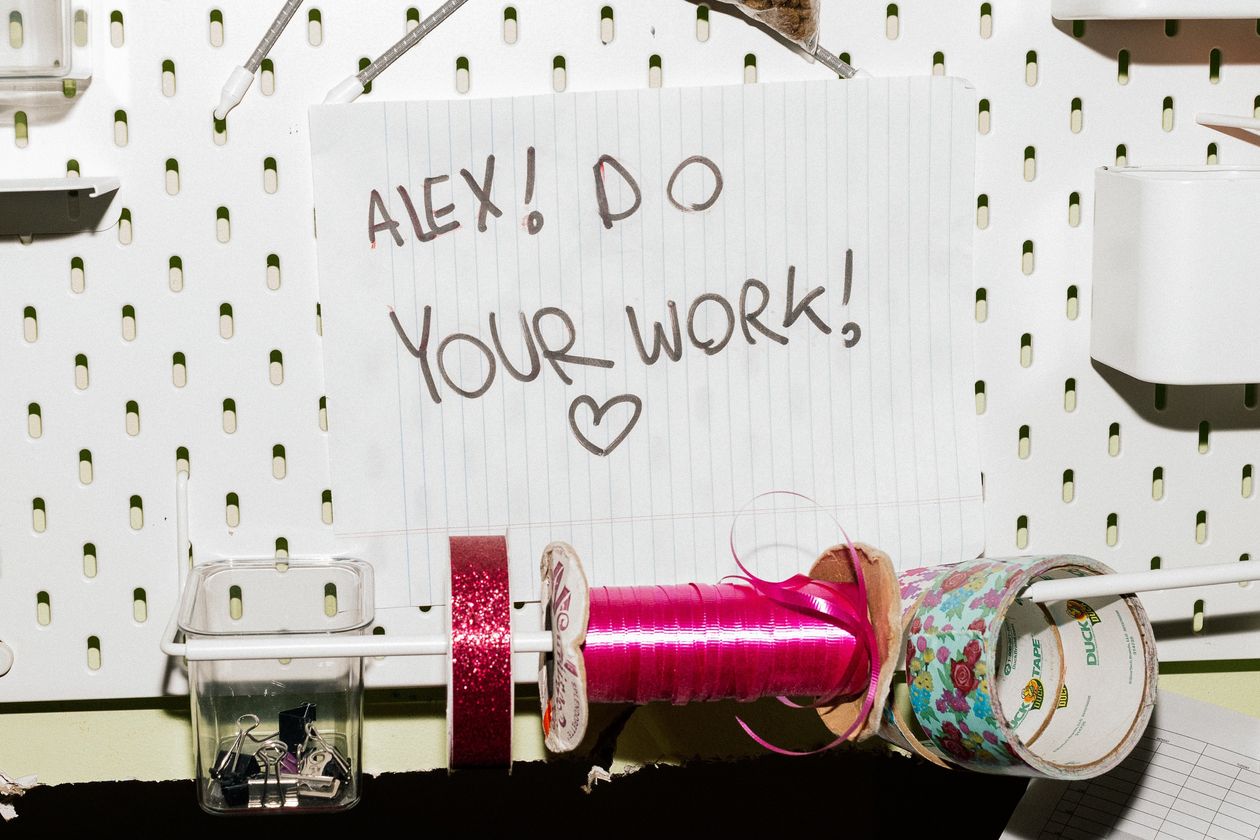 ALEX! DO
YOUR WORK!
DUCK TAPE
DUCK